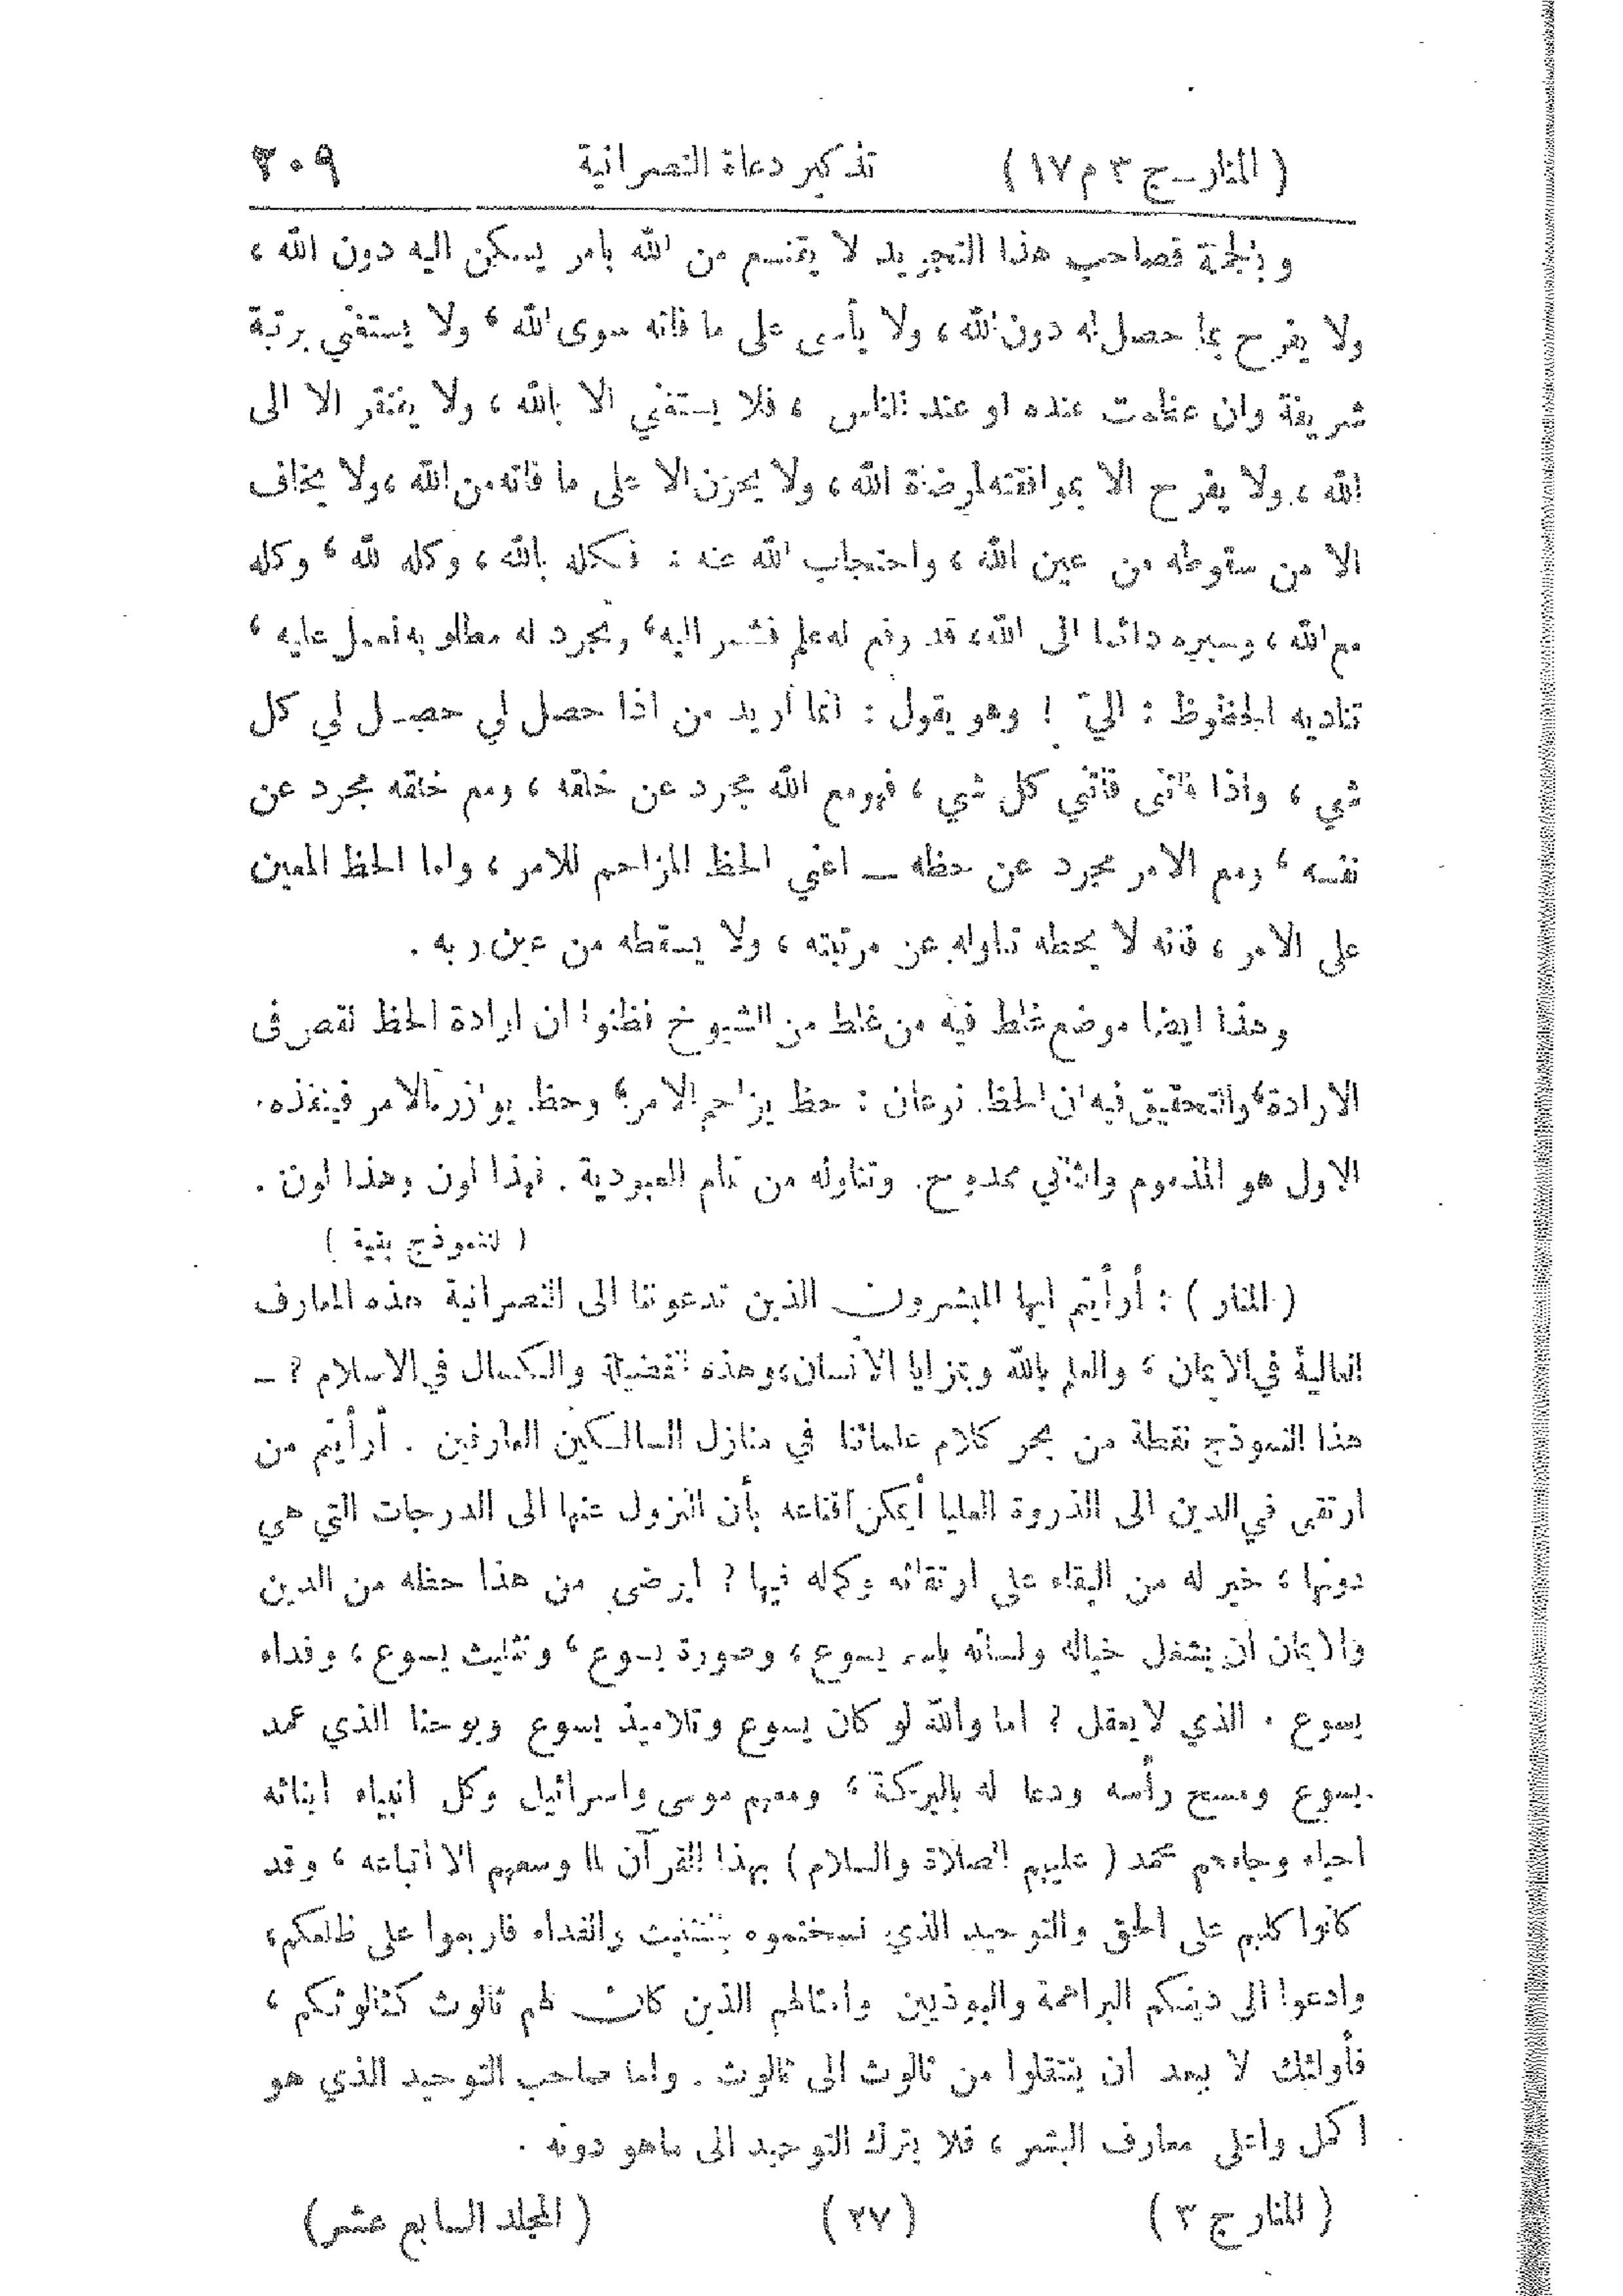 (المنار ـ ج ٣ م ١٧) تذكير دعاة النصرانية ٢٠٩
وبالجملة فصاحب هذا التجريد لا يقنع من الله بأمر يسكن اليه دون الله ،
ولا يفرح بما حصل له دون الله ، ولا يأسى على ما فاته سوى الله ، ولا يستغني برتبة
شريفة وان عظمت عنده او عند الناس ، فلا يستغني الا بالله ، ولا يفتقر الا الى
الله ، ولا يفرح الا بموافقته لمرضاة الله ، ولا يحزن الا على ما فاته من الله ، ولا يخاف
الا من سقوطه من عين الله ، واحتجاب الله عنه : فكله بالله ، وكله لله ، وكله
مع الله ، وسيره دائما الى الله ، قد رفع له علم فشمر اليه ، وتجرد له مطلوبه فعمل عليه ،
تناديه الحظوظ : اليّ ! وهو يقول : انما أريد من اذا حصل لي حصل لي كل
شي ، واذا فاتني فاتني كل شي ، فهو مع الله مجرد عن خلقه ، ومع خلقه مجرد عن
نفسه ، ومع الامر مجرد عن حظه ـ اعني الحظ المزاحم للامر ، واما الحظ المعين
على الامر ، فانه لا يحطه تناوله عن مرتبته ، ولا يسقطه من عين ربه .
وهذا ايضا موضع غلط فيه من غلط من الشيوخ فظنوا ان ارادة الحظ نقص في
الارادة ، والتحقيق فيه ان الحظ نوعان : حظ يزاحم الامر ، وحظ يوازر الامر فينفذه .
الاول هو المذموم والثاني ممدوح . وتناوله من تمام العبودية . فهذا لون وهذا لون .
( للنموذج بقية )
( المنار ) : أرأيتم ايها المبشرون الذين تدعوننا الى النصرانية هذه المعارف
العالية في الايمان ، والعلم بالله وبمزايا الانسان ، وهذه الفضيلة والكمال في الاسلام ؟ ـ
هذا النموذج نقطة من بحر كلام علمائنا في منازل السالكين العارفين . أرأيتم من
ارتقى في الدين الى الذروة العليا أيمكن اقناعه بأن النزول عنها الى الدرجات التي هي
دونها ، خير له من البقاء على ارتقائه وكماله فيها ؟ ايرضى من هذا حظه من الدين
والايمان ان يشغل خياله ولسانه باسم يسوع ، وصورة يسوع ، وتثليث يسوع ، وفداء
يسوع . الذي لا يعقل ؟ اما والله لو كان يسوع وتلاميذ يسوع ويوحنا الذي عمد
يسوع ومسح رأسه ودعا له بالبركة ، ومعهم موسى واسرائيل وكل انبياء ابنائه
احياء وجاءهم محمد ( عليهم الصلاة والسلام ) بهذا القرآن لما وسعهم الا اتباعه ، وقد
كانوا كلهم على الحق والتوحيد الذي نسختموه بالتثليث والفداء فاربعوا على ظلعكم ،
وادعوا الى دينكم البراهمة والبوذيين وامثالهم الذين كان لهم ثالوث كثالوثكم ،
فأولئك لا يبعد ان ينتقلوا من ثالوث الى ثالوث . واما صاحب التوحيد الذي هو
اكمل واعلى معارف البشر ، فلا يترك التوحيد الى ماهو دونه .
( المنار ج ٣ ) ( ٢٧ ) ( المجلد السابع عشر )